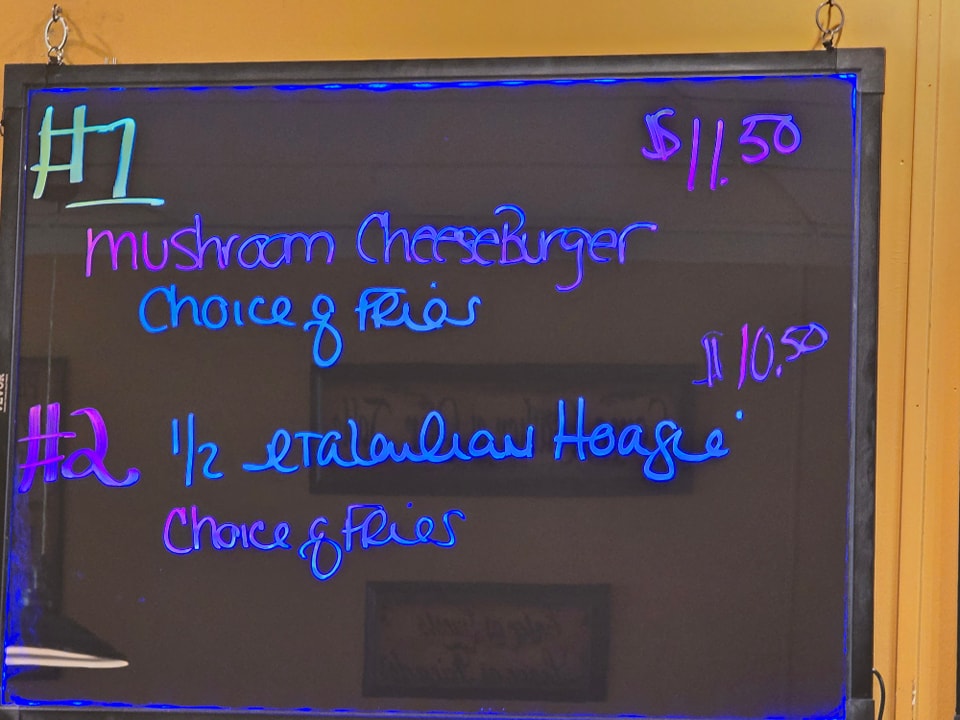 #1 $11.50
mushroom CheeseBurger
Choice of Fries
$10.50
#2 1/2 Hoagie
Choice of Fries